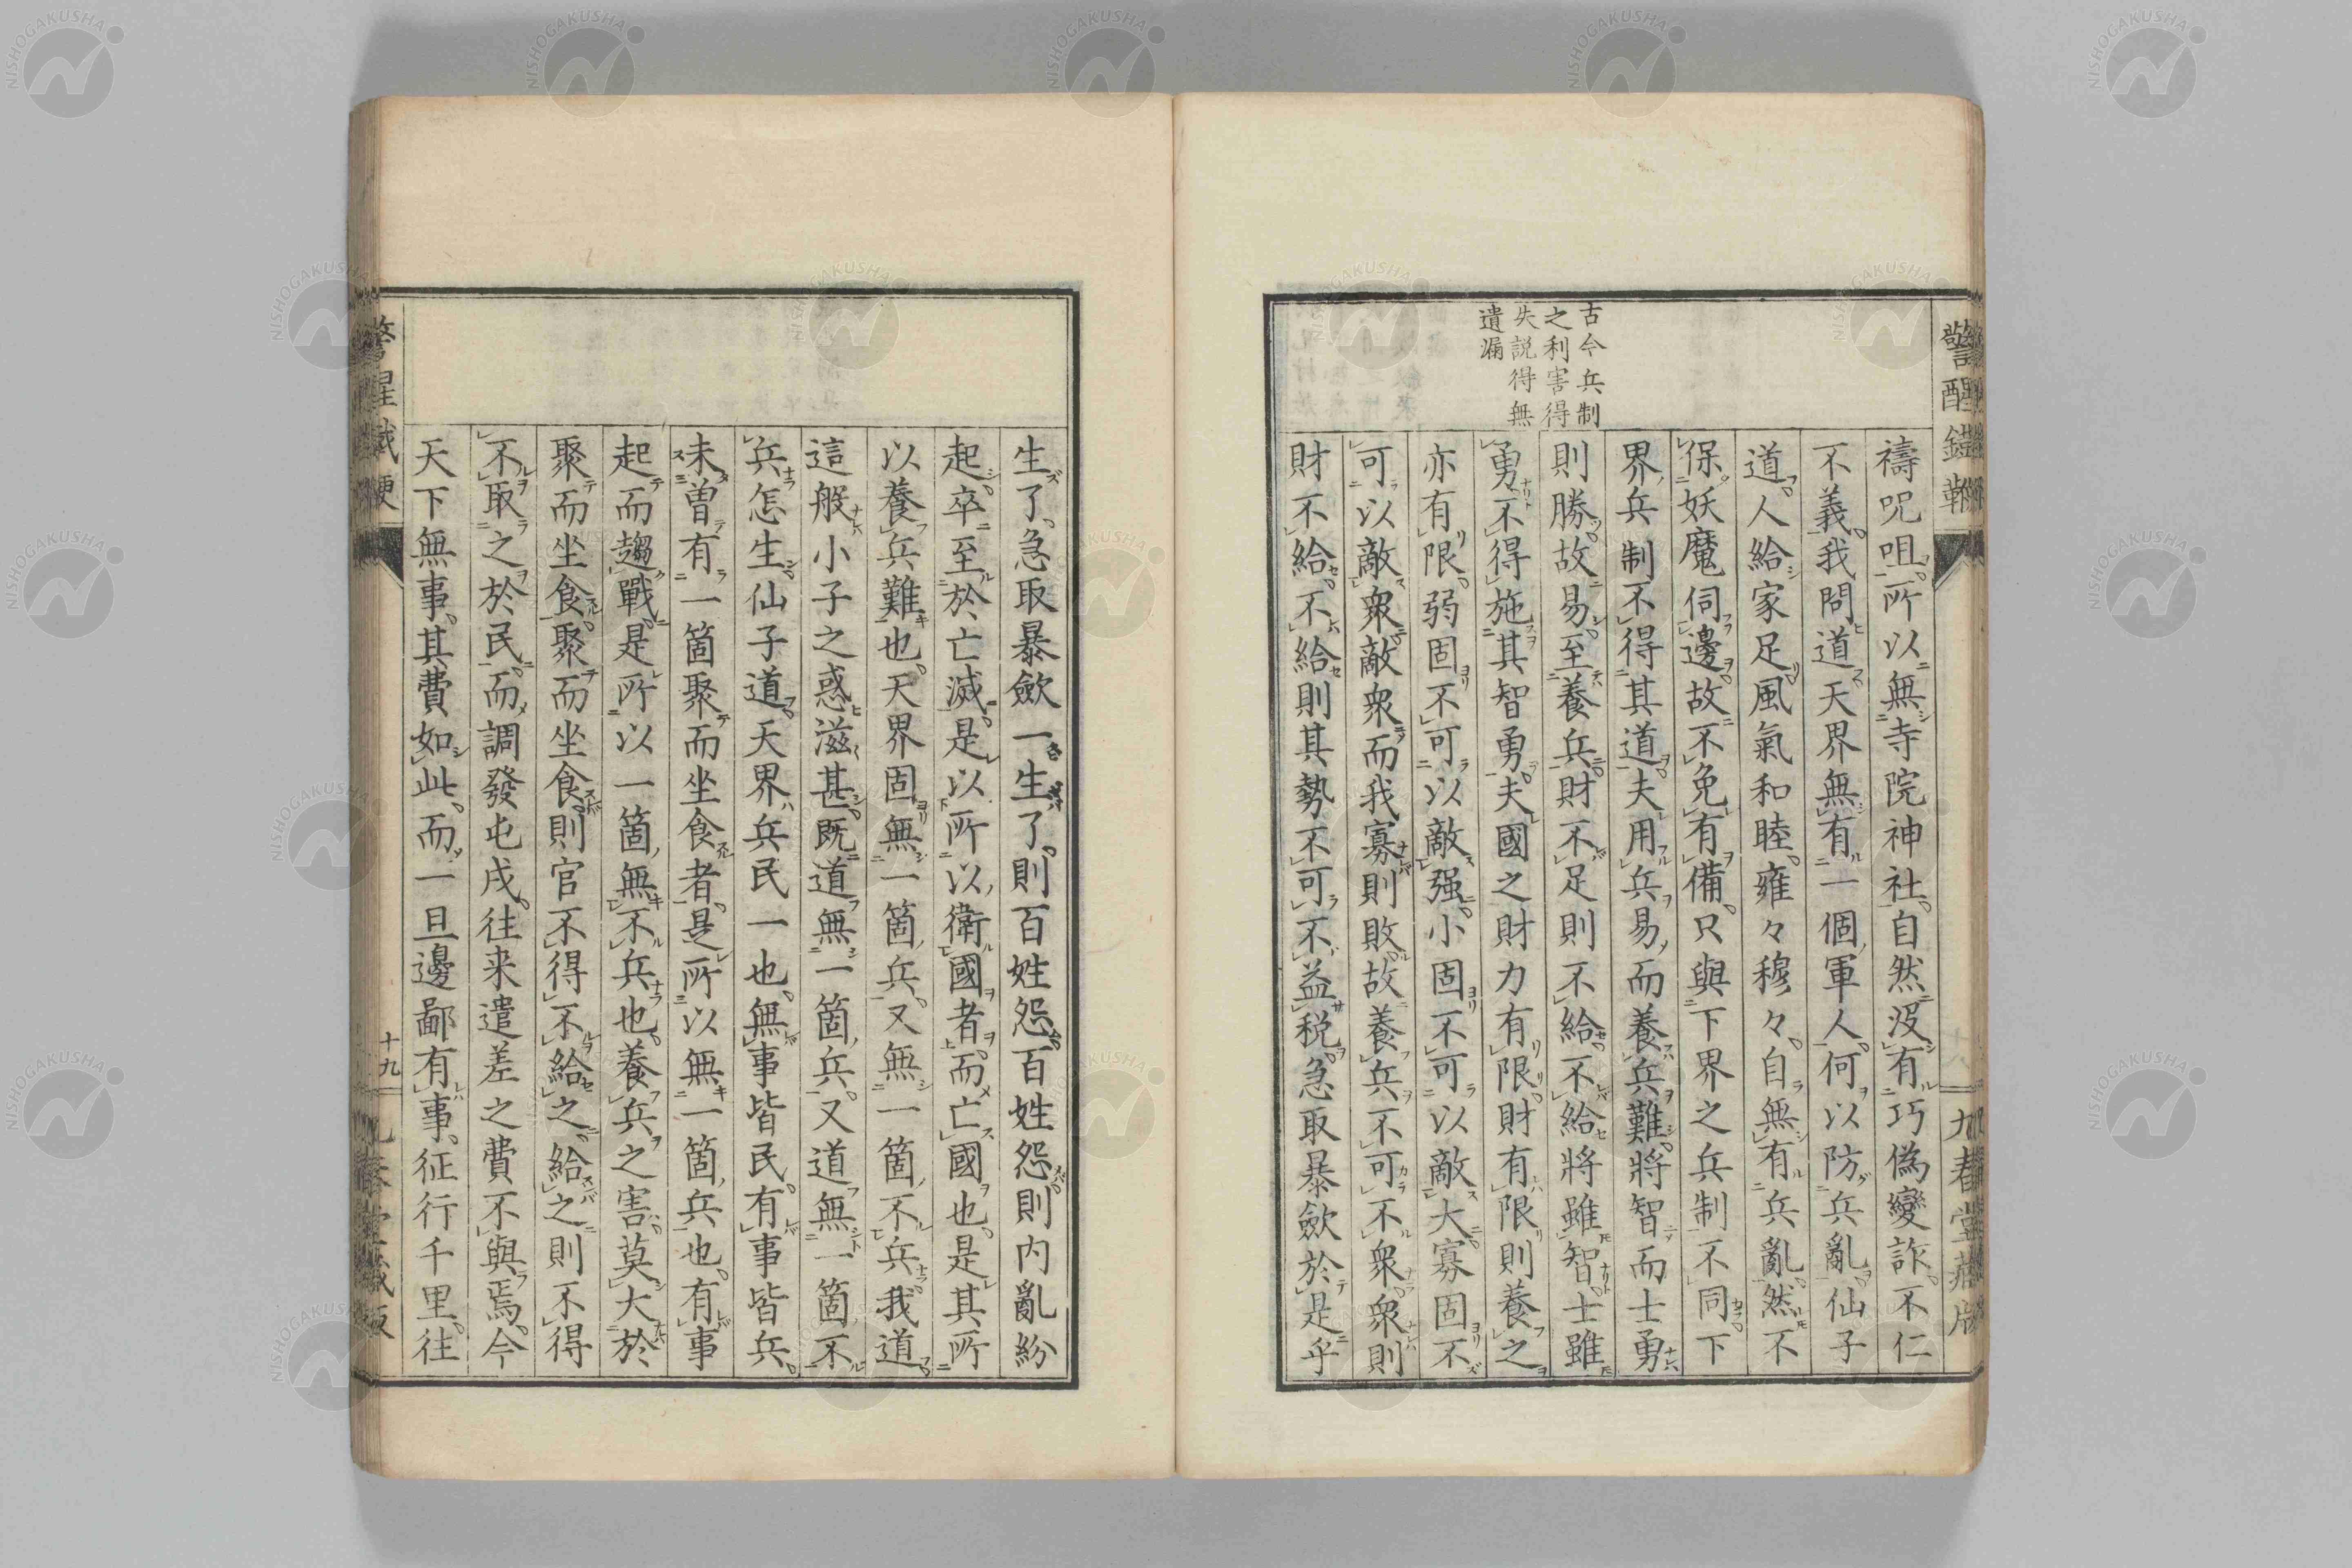 警醒鐵鞭
九春堂藏版
古今兵制
之利害得
失説得無
遺漏
禱呪咀所以無寺院神社自然沒有巧偽變詐不仁
不義我問道天界無有一個軍人何以防兵亂仙子
道人給家足風氣和睦雍々穆々自無有兵亂然不
保妖魔伺邊故不免有備只與下界之兵制不同下
界兵制不得其道夫用兵易而養兵難將智而士勇
則勝故易至養兵財不足則不給不給將雖智士雖
勇不得施其智勇夫國之財力有限財有限則養之
亦有限弱固不可以敵强小固不可以敵大寡固不
可以敵衆敵衆而我寡則敗故養兵不可不衆衆則
財不給不給則其勢不可不益税急取暴斂於是乎
生了急取暴斂一生了則百姓怨百姓怨則内亂紛
起卒至於亡滅是以所以衛國者而亡國也是其所
以養兵難也天界固無一箇兵又無一箇不兵我道
這般小子之惑滋甚既道無一箇兵又道無一箇不
兵怎生仙子道天界兵民一也無事皆民有事皆兵
未曽有一箇聚而坐食者是所以無一箇兵也有事
起而趨戰是所以一箇無不兵也養兵之害莫大於
聚而坐食聚而坐食則官不得不給之給之則不得
不取之於民而調發屯戍往来遣差之費不與焉今
天下無事其費如此而一旦邊鄙有事征行千里往
十九